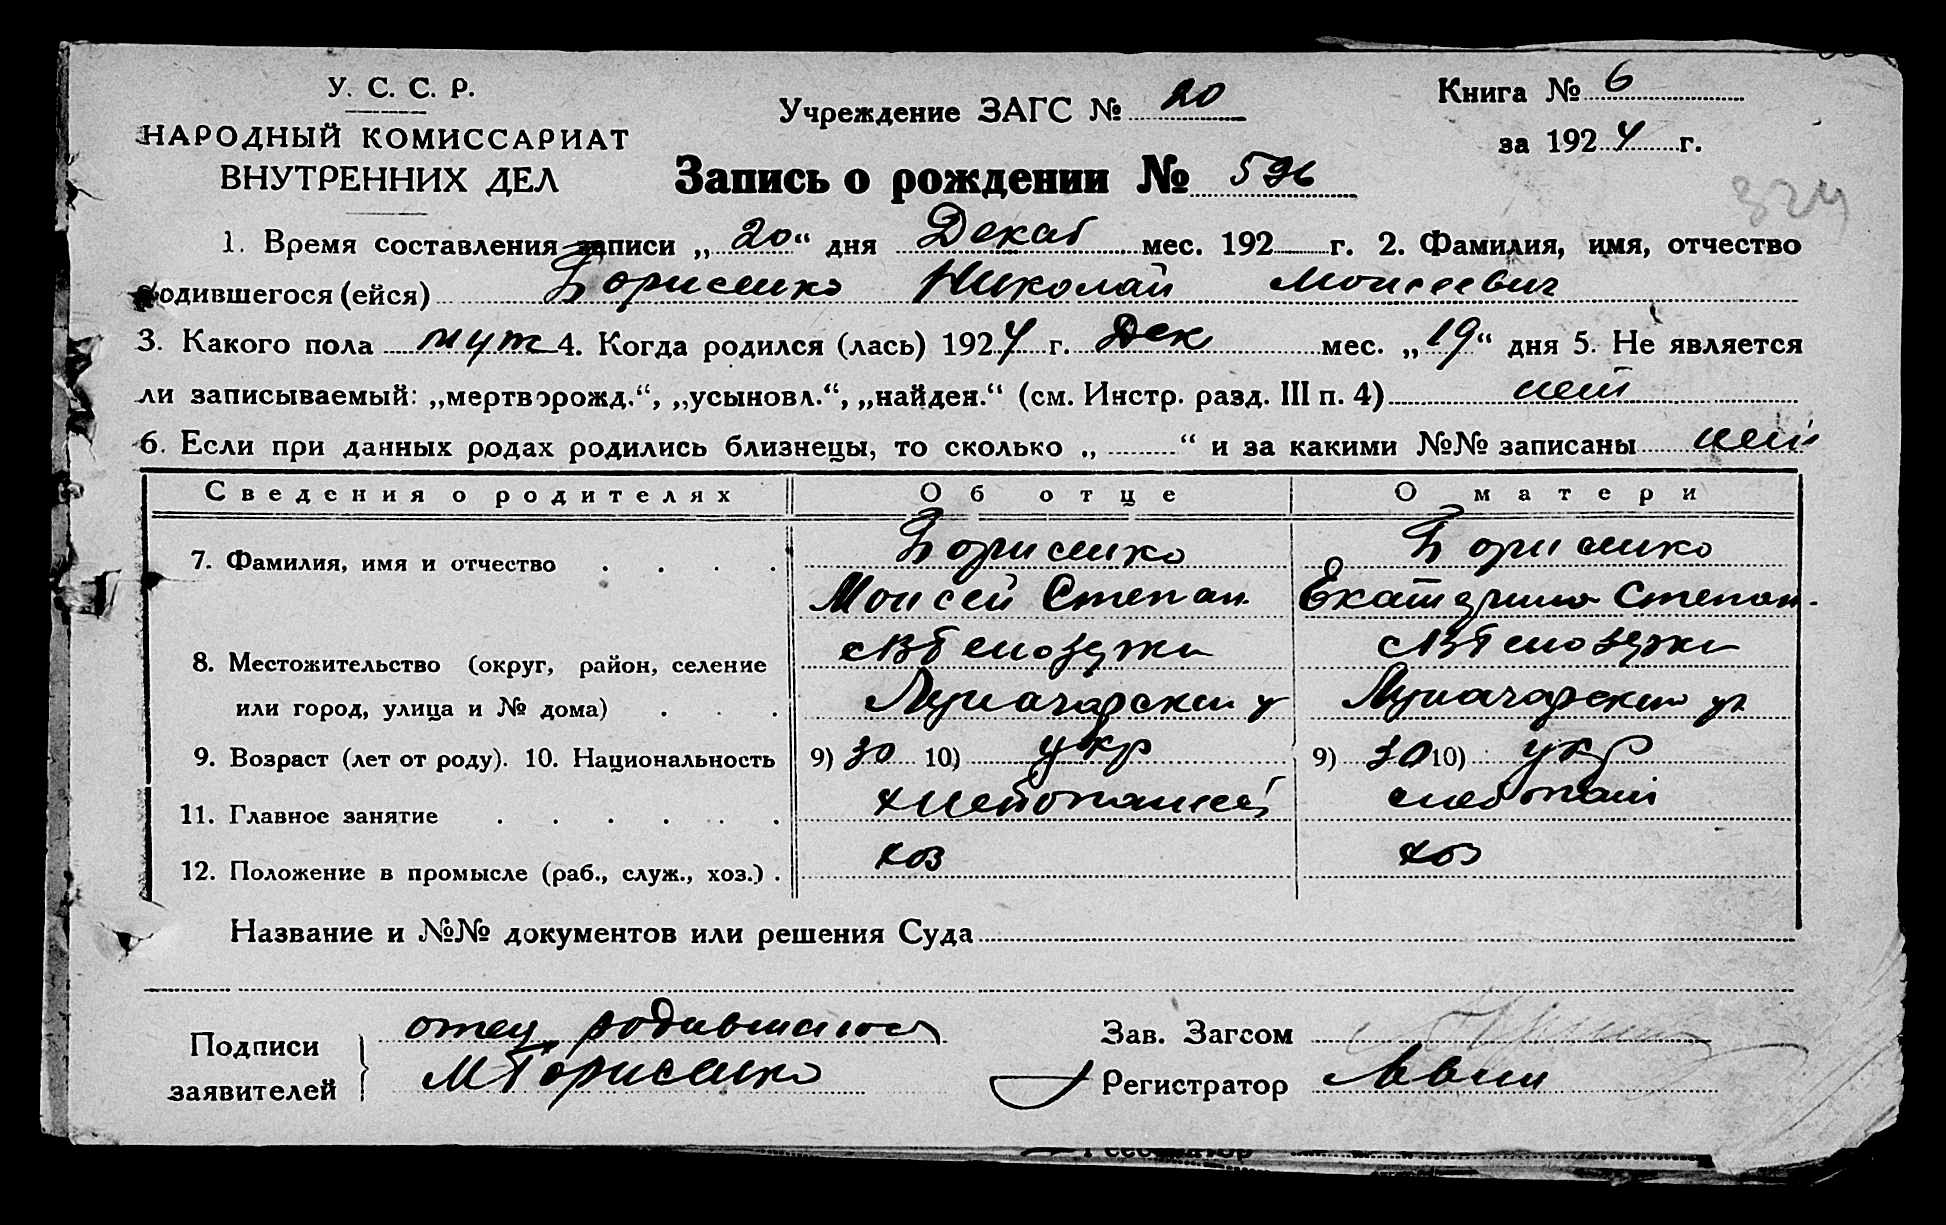 У. С. С. Р.
НАРОДНЫЙ КОМИССАРИАТ
ВНУТРЕННИХ ДЕЛ
Учреждение ЗАГС № 20
Книга № 6
за 1924 г.
Запись о рождении № 596
324
1. Время составления записи „20“ дня Декаб мес. 192 г. 2. Фамилия, имя, отчество
родившегося (ейся) Борисенко Николай Моисеевич
3. Какого пола муж 4. Когда родился (лась) 1924 г. Дек мес. „19“ дня 5. Не является
ли записываемый: „мертворожд.“, „усыновл.“, „найден.“ (см. Инстр. разд. III п. 4) нет
6. Если при данных родах родились близнецы, то сколько „ “ и за какими №№ записаны нет
Сведения о родителях Об отце О матери
7. Фамилия, имя и отчество Борисенко Борисенко
Моисей Степан. Екатерина Степан.
8. Местожительство (округ, район, селение
или город, улица и № дома) Луначарский у Луначарский ул
9. Возраст (лет от роду). 10. Национальность 9) 30 10) укр 9) 30 10) укр
11. Главное занятие хлебопашец хлебопаш
12. Положение в промысле (раб., служ., хоз.) хоз хоз
Название и №№ документов или решения Суда
Подписи заявителей
отец родившегося
МБорисенко
Зав. Загсом
Регистратор